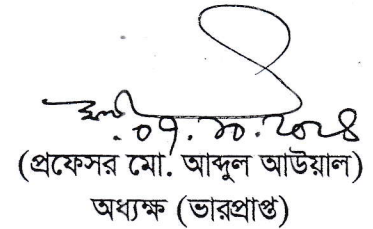 ০৭.১০.২০২৪
(প্রফেসর মো. আব্দুল আউয়াল)
অধ্যক্ষ (ভারপ্রাপ্ত)